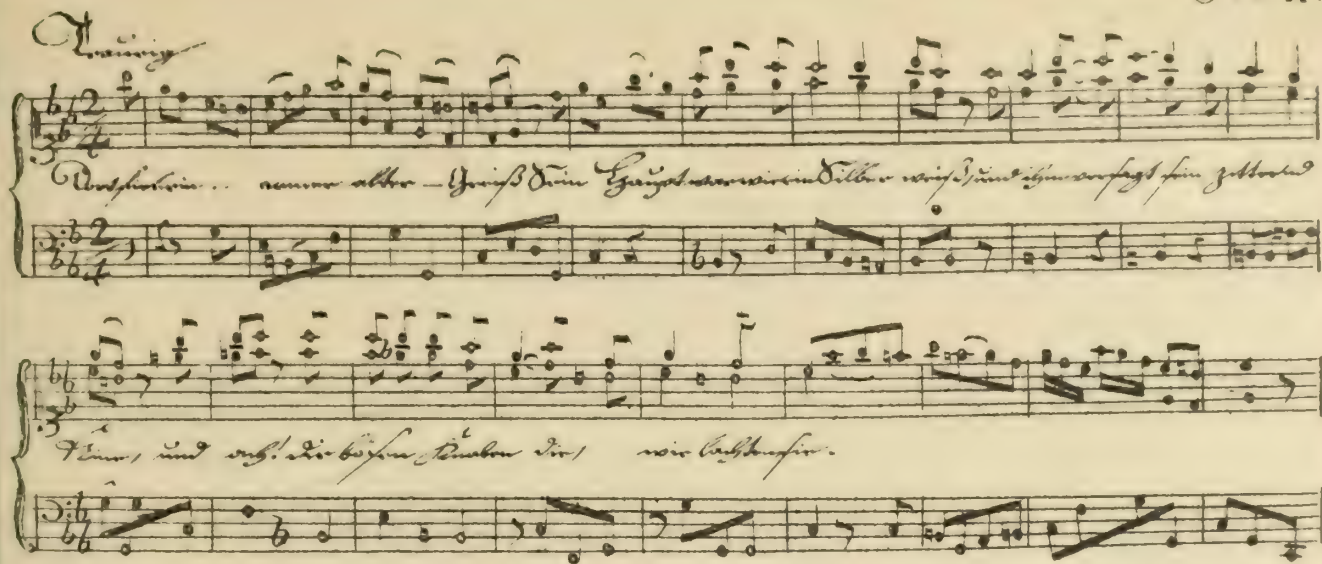 Traurig
Dort schlich ein.. armer alter – Greiß Sein Haupt war wie ein Silber weiß, und ihm versagt sein zitternd
Knie, und ach! die bösen Knaben die, wie lachten sie.